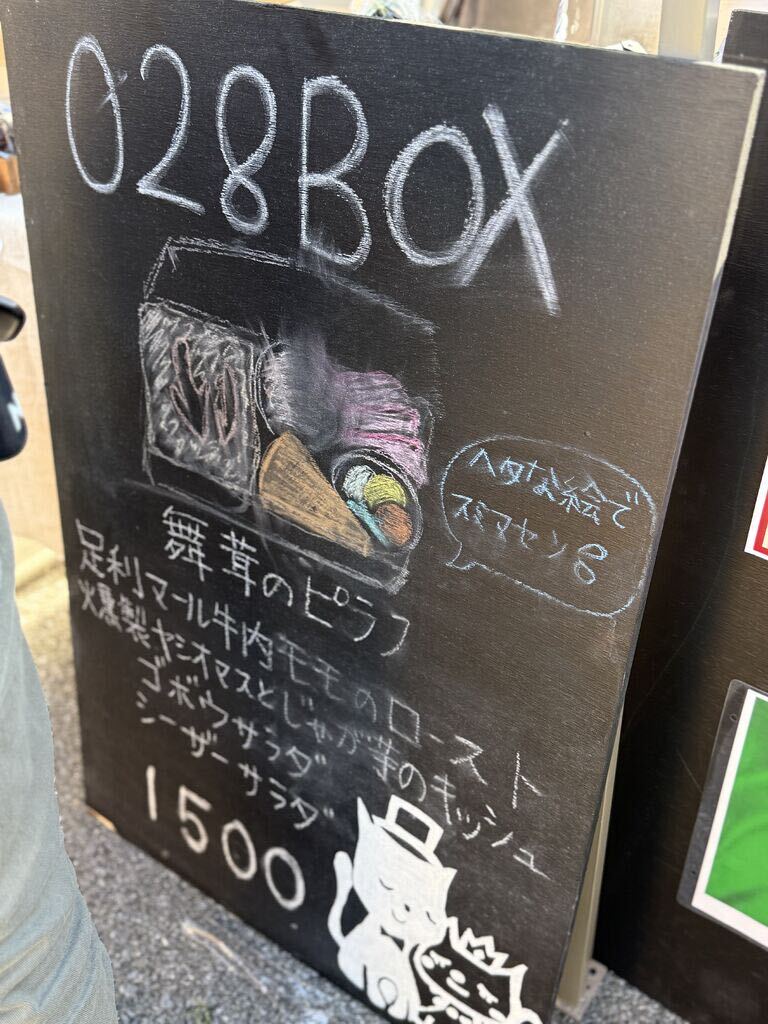 028BOX
ヘタな絵で
スミマセン
舞茸のピラフ
足利マール牛内モモのロースト
燻製ヤシオマスとじゃが芋のキッシュ
ゴボウサラダ
シーザーサラダ
1500